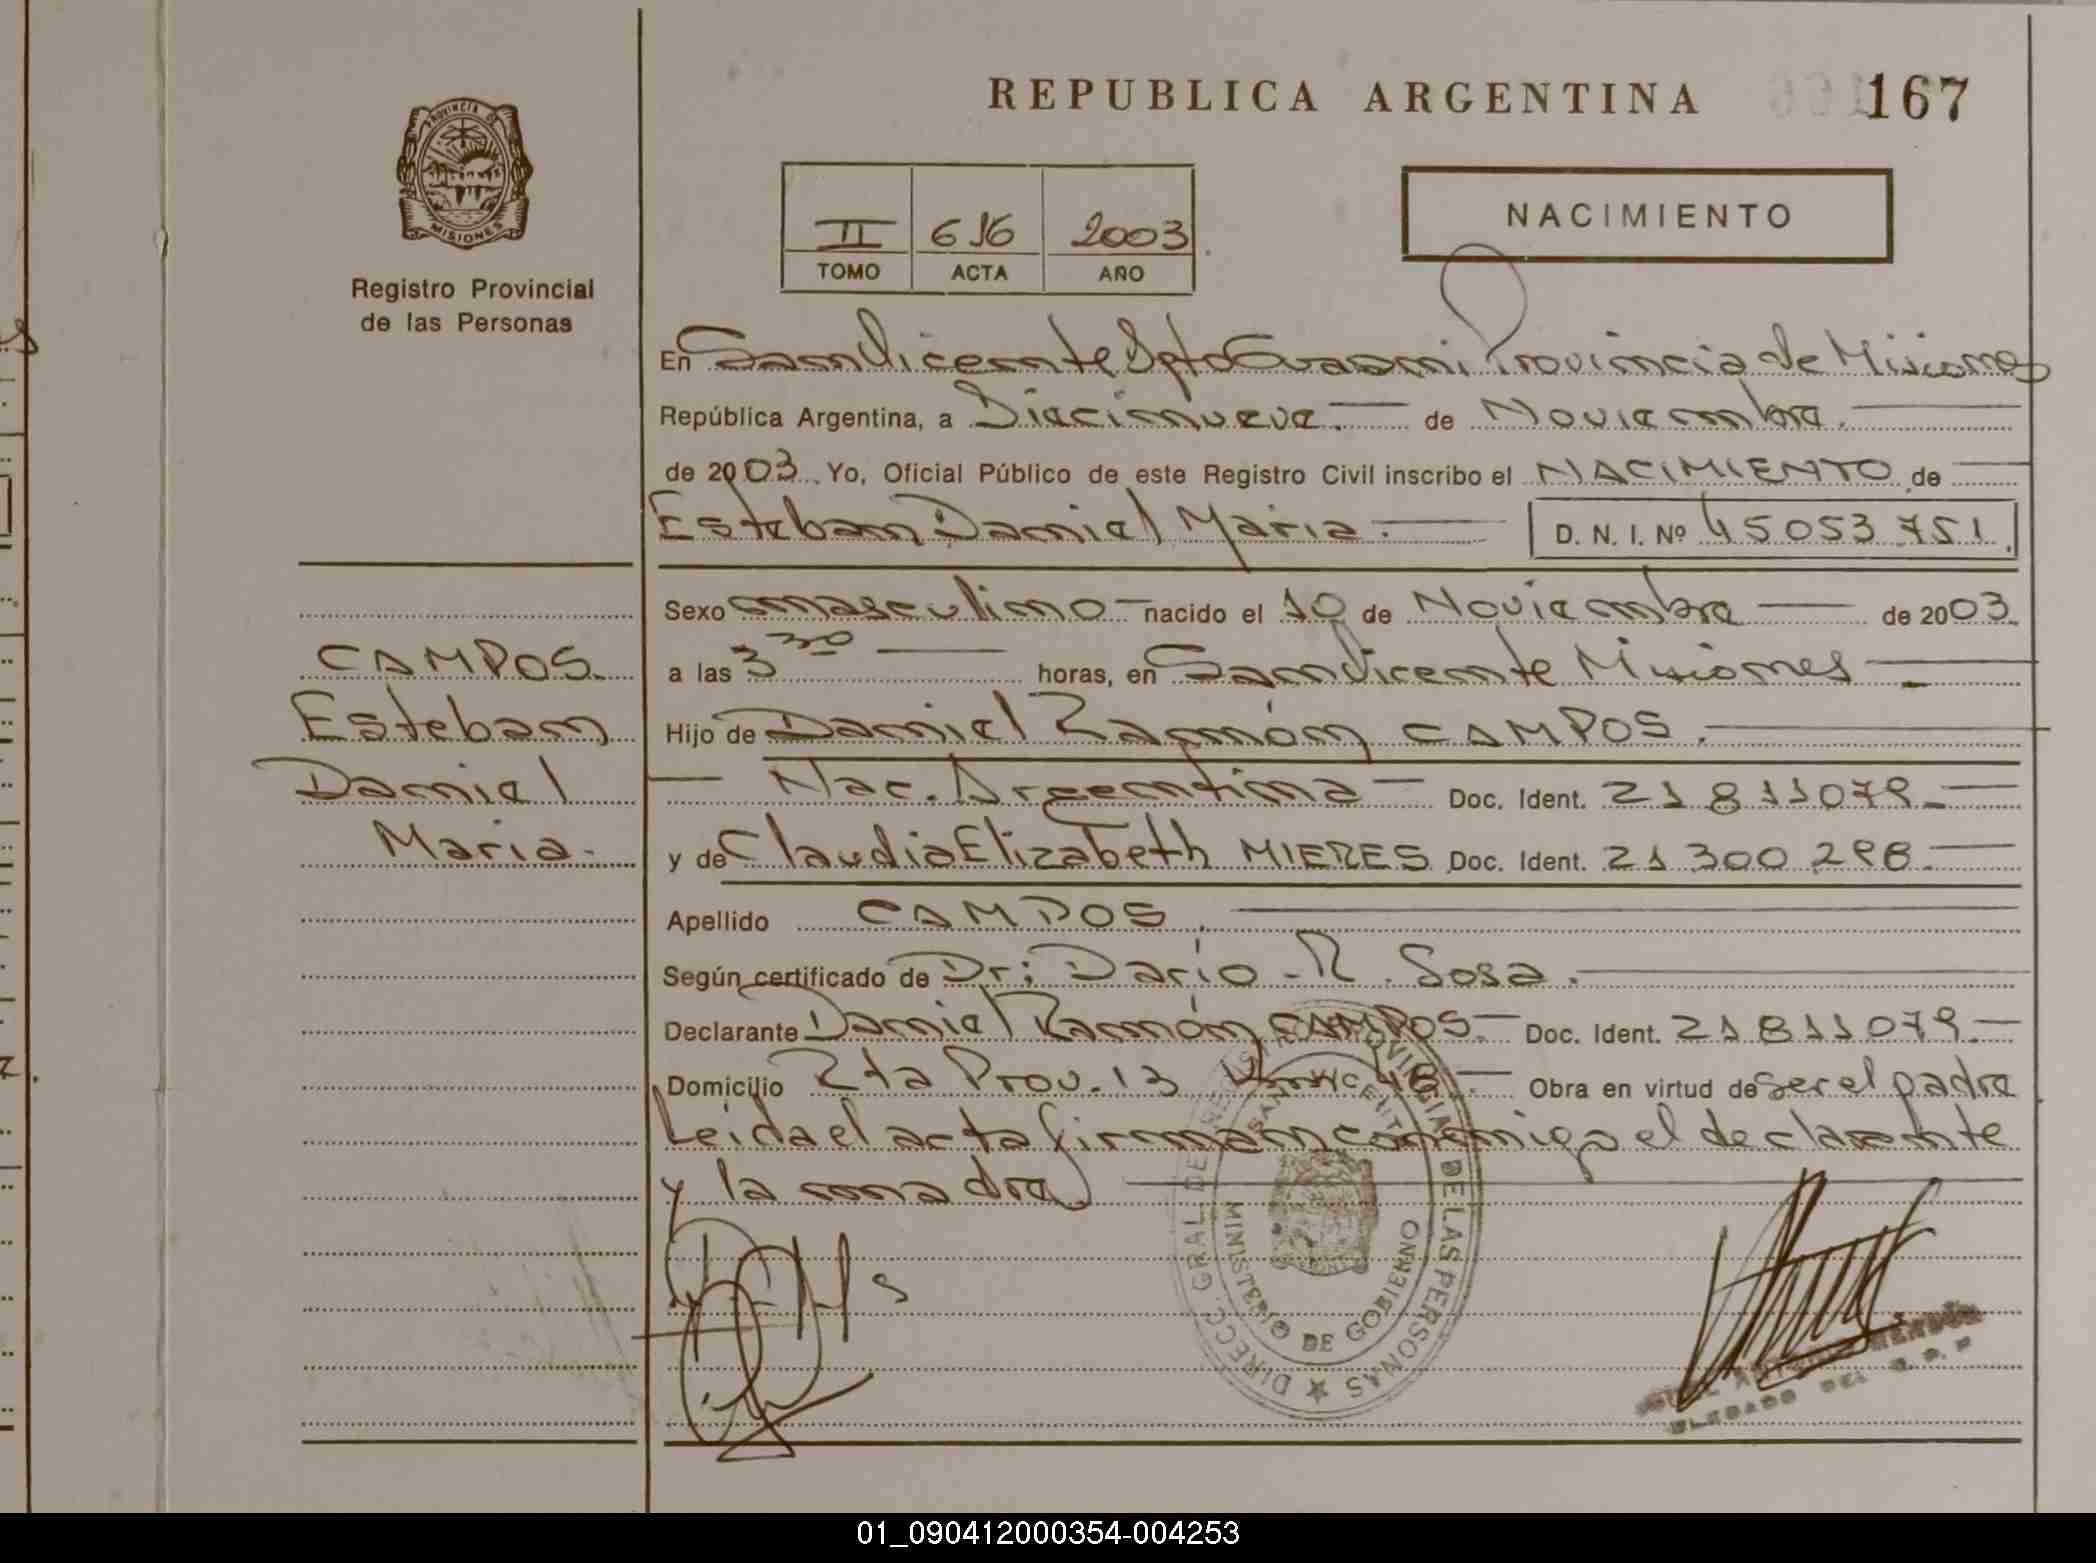 REPUBLICA ARGENTINA 167
PROVINCIA DE MISIONES
Registro Provincial
de las Personas
II 616 2003
TOMO ACTA AÑO
NACIMIENTO
En San Vicente Dpto Guarani, Provincia de Misiones
República Argentina, a Diecinueve. de Noviembre.
de 2003. Yo, Oficial Público de este Registro Civil inscribo el NACIMIENTO de
Esteban Daniel Maria. D. N. I. Nº 45053.751.
Sexo masculino nacido el 10 de Noviembre de 2003.
a las 3 30 horas, en San Vicente Misiones
Hijo de Daniel Ramón CAMPOS.
Nac. Argentina Doc. Ident. 21 811079.
y de Claudia Elizabeth MIERES Doc. Ident. 21 300 298.
Apellido CAMPOS.
Según certificado de Dr: Dario R. Sosa.
Declarante Daniel Ramón CAMPOS. Doc. Ident. 21 811079.
Domicilio Rta Prov. 13 Obra en virtud de ser el padre
Leida el acta firman conmigo el declarante
y la madre
CAMPOS.
Esteban
Daniel
Maria.
DIRECC. GRAL. DE PROVINCIAL DE LAS PERSONAS
SAN VICENTE
MINISTERIO DE GOBIERNO
01_090412000354-004253